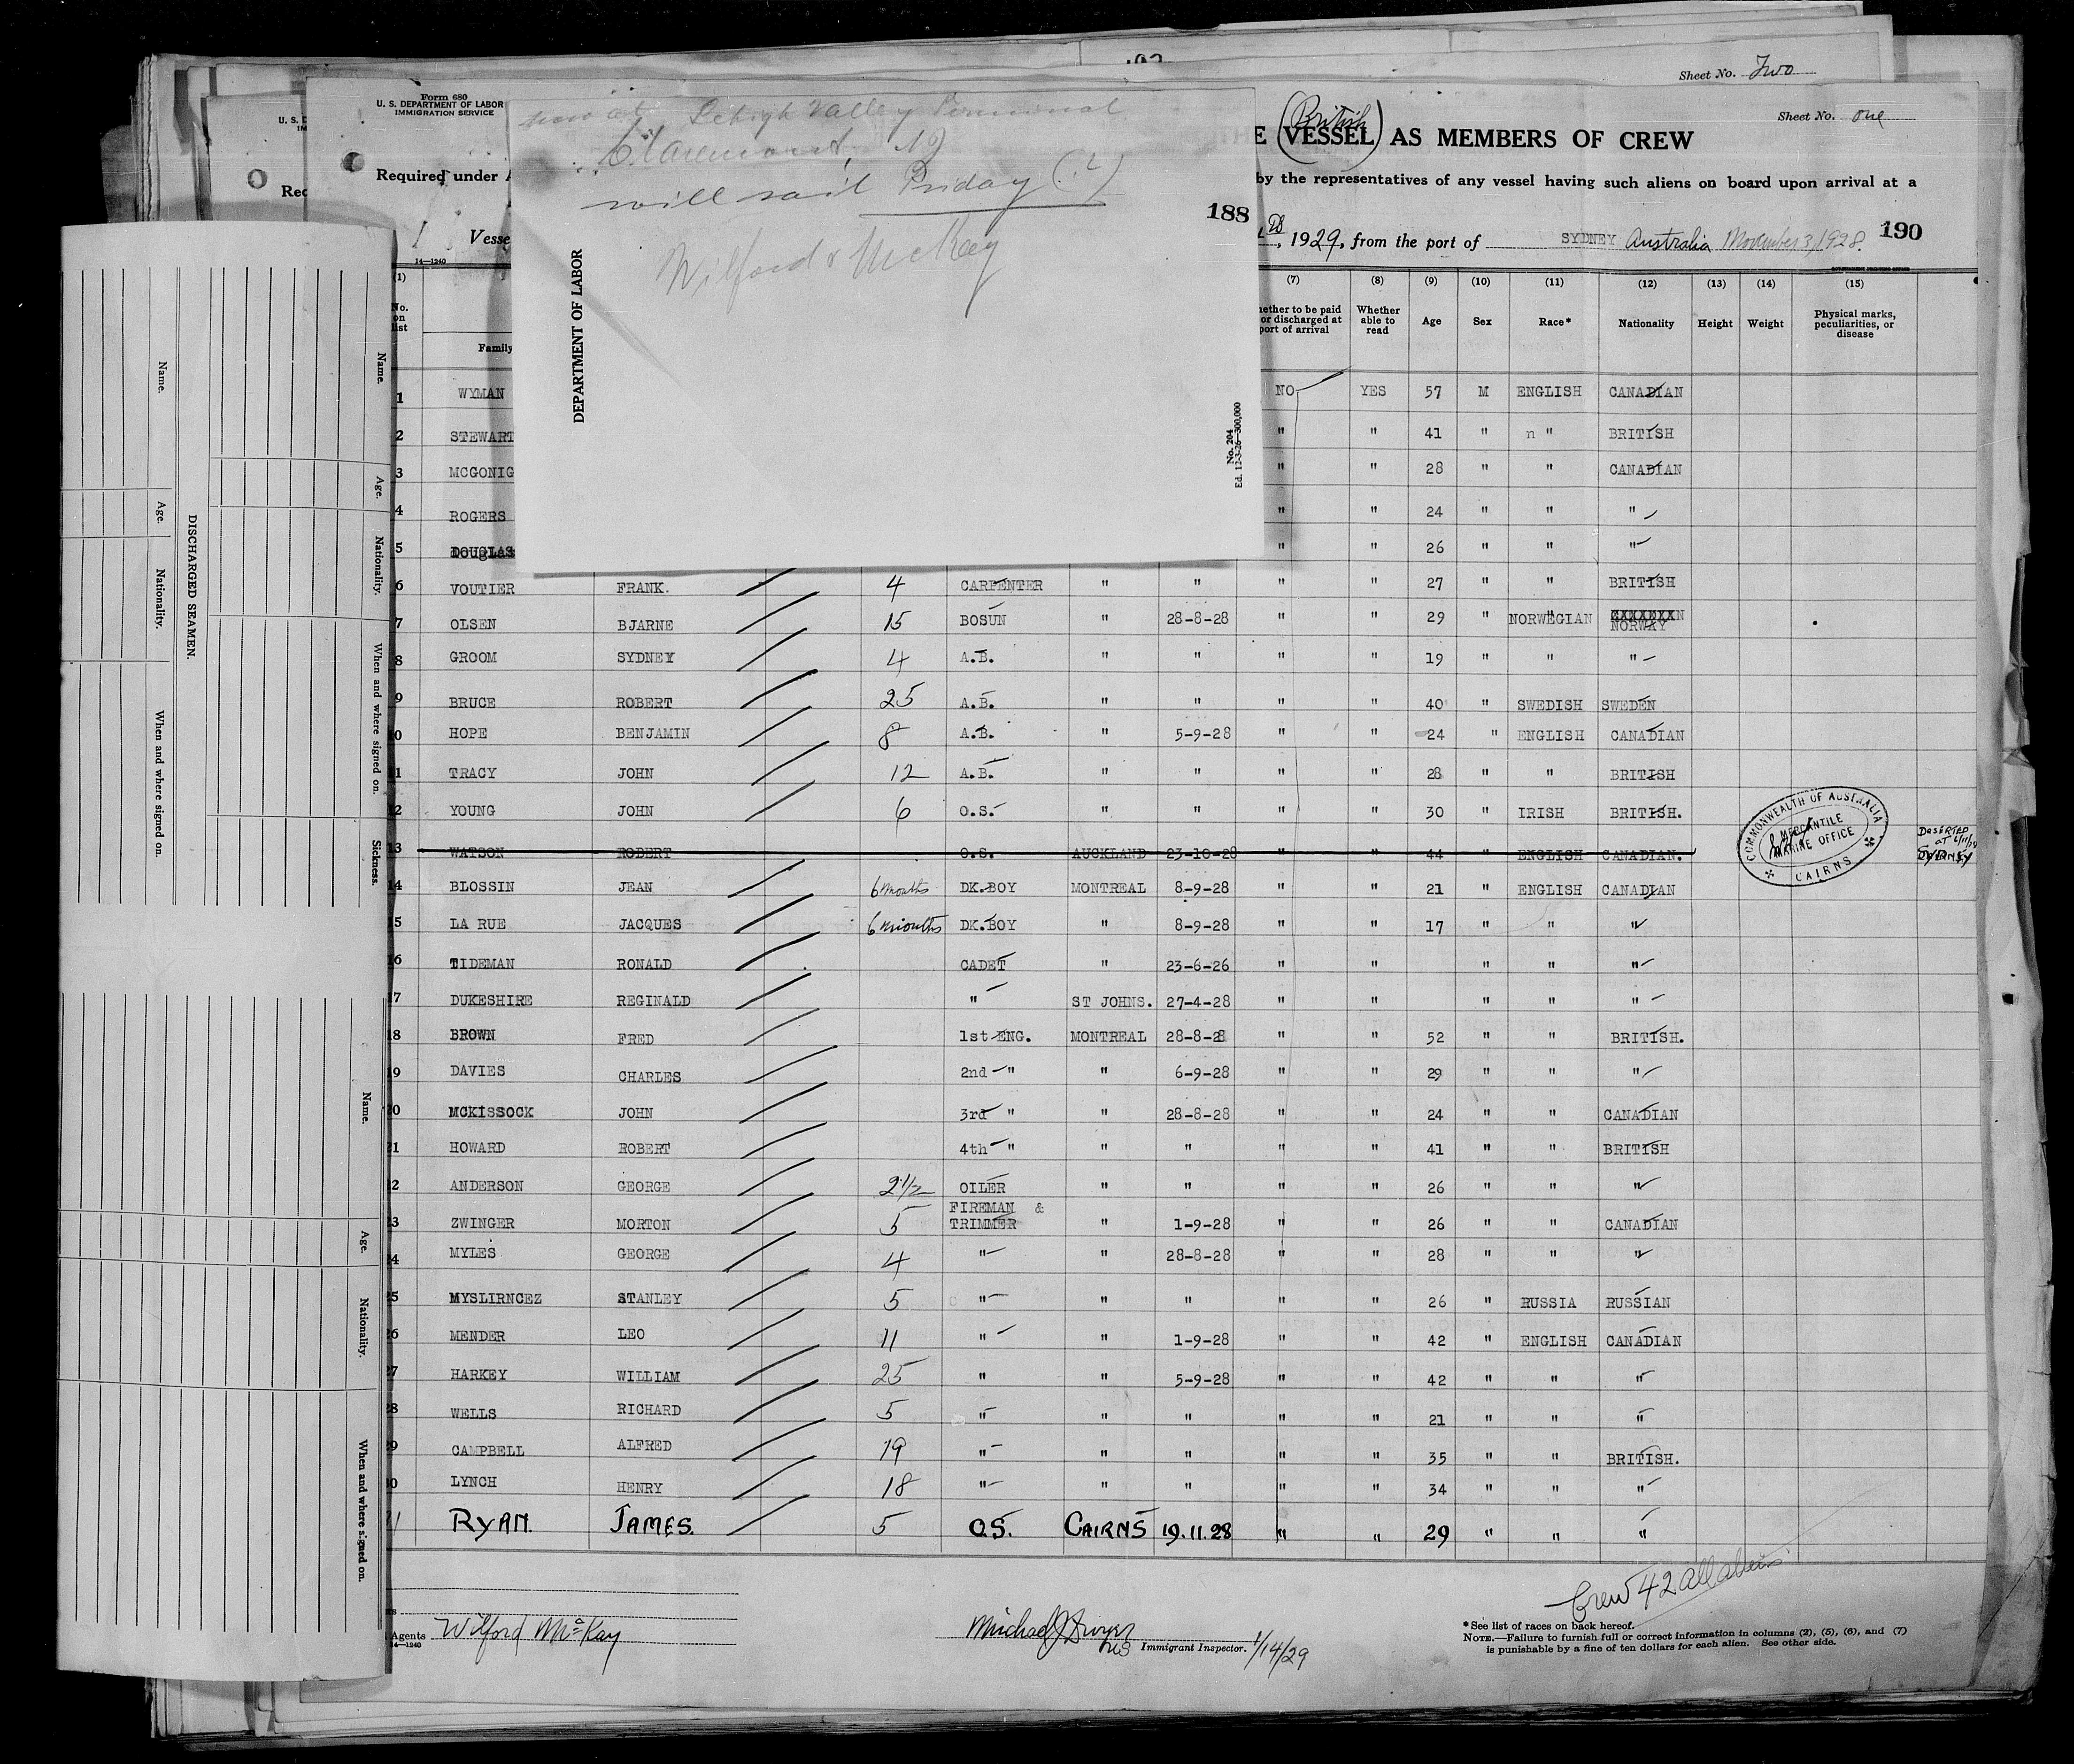 Sheet No. Two
Form 680
U. S. DEPARTMENT OF LABOR
IMMIGRATION SERVICE
Sheet No. one
(British)
VESSEL AS MEMBERS OF CREW
Required under
by the representatives of any vessel having such aliens on board upon arrival at a
Lehigh Valley Terminal
Claremont, NJ
will sail Friday (?)
Wilford & McKay
188
DEPARTMENT OF LABOR
No. 204
Ed. 12-3-26—300,000
1929, from the port of SYDNEY Australia November 3, 1928. 190
14—1240
(1) (7) (8) (9) (10) (11) (12) (13) (14) (15)
No. on list Family Whether able to read Age Sex Race* Nationality Height Weight Physical marks, peculiarities, or disease
port of arrival
1 WYMAN NO YES 57 M ENGLISH CANADIAN
2 STEWART " " 41 " " BRITISH
3 MCGONIG " " 28 " " CANADIAN
4 ROGERS " " 24 " " "
5 DOUGLAS " " 26 " " "
6 VOUTIER FRANK. 4 CARPENTER " " " " 27 " " BRITISH
7 OLSEN BJARNE 15 BOSUN " 28-8-28 " " 29 " NORWEGIAN NORWAY
8 GROOM SYDNEY 4 A.B. " " " " 19 " " "
9 BRUCE ROBERT 25 A.B. " " " " 40 " SWEDISH SWEDEN
10 HOPE BENJAMIN 8 A.B. " 5-9-28 " " 24 " ENGLISH CANADIAN
11 TRACY JOHN 12 A.B. " " " " 28 " " BRITISH
12 YOUNG JOHN 6 O.S. " " " " 30 " IRISH BRITISH.
13 WATSON ROBERT O.S. AUCKLAND 23-10-28 " " 44 " ENGLISH CANADIAN.
COMMONWEALTH OF AUSTRALIA
MERCANTILE
MARINE OFFICE
CAIRNS
DESERTED
at
SYDNEY
14 BLOSSIN JEAN 6 months DK.BOY MONTREAL 8-9-28 " " 21 " ENGLISH CANADIAN
15 LA RUE JACQUES 6 months DK.BOY " 8-9-28 " " 17 " " "
16 TIDEMAN RONALD CADET " 23-6-26 " " " " "
17 DUKESHIRE REGINALD " ST JOHNS. 27-4-28 " " " " "
18 BROWN FRED 1st ENG. MONTREAL 28-8-28 " " 52 " " BRITISH.
19 DAVIES CHARLES 2nd " " 6-9-28 " " 29 " " "
20 MCKISSOCK JOHN 3rd " " 28-8-28 " " 24 " " CANADIAN
21 HOWARD ROBERT 4th " " " " " 41 " " BRITISH
22 ANDERSON GEORGE 2 1/2 OILER " " " " 26 " " "
23 ZWINGER MORTON 5 FIREMAN & TRIMMER " 1-9-28 " " 26 " " CANADIAN
24 MYLES GEORGE 4 " " 28-8-28 " " 28 " " "
25 MYSLIRNCEZ STANLEY 5 " " " " " 26 " RUSSIA RUSSIAN
26 MENDER LEO 11 " " 1-9-28 " " 42 " ENGLISH CANADIAN
27 HARKEY WILLIAM 25 " " 5-9-28 " " 42 " " "
28 WELLS RICHARD 5 " " " " " 21 " " "
29 CAMPBELL ALFRED 19 " " " " " 35 " " BRITISH.
30 LYNCH HENRY 18 " " " " " 34 " " "
31 RYAN. JAMES. 5 O.S. CAIRNS 19.11.28 " " 29 " " "
Crew 42 all aliens
Agents Wilford McKay
14—1240
Michael J Dwyer
Immigrant Inspector. 1/14/29
* See list of races on back hereof.
NOTE.—Failure to furnish full or correct information in columns (2), (5), (6), and (7)
is punishable by a fine of ten dollars for each alien. See other side.
DISCHARGED SEAMEN.
Name. Age. Nationality. When and where signed on.
Name. Age. Nationality. When and where signed on. Sickness.
Name. Age. Nationality. When and where signed on.